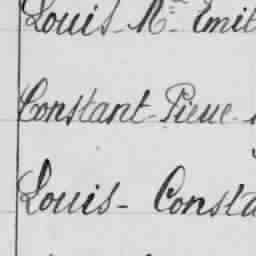 Louis- Mie Emil
Constant- Pierre-
Louis- Consta